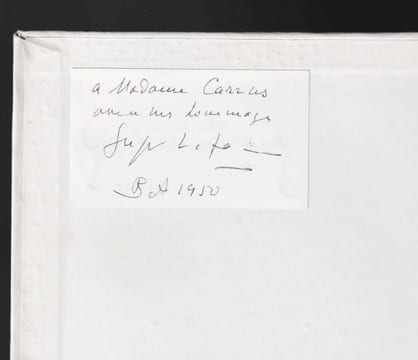 a Madame
avec mes hommages
Serge Lifar
BA 1950